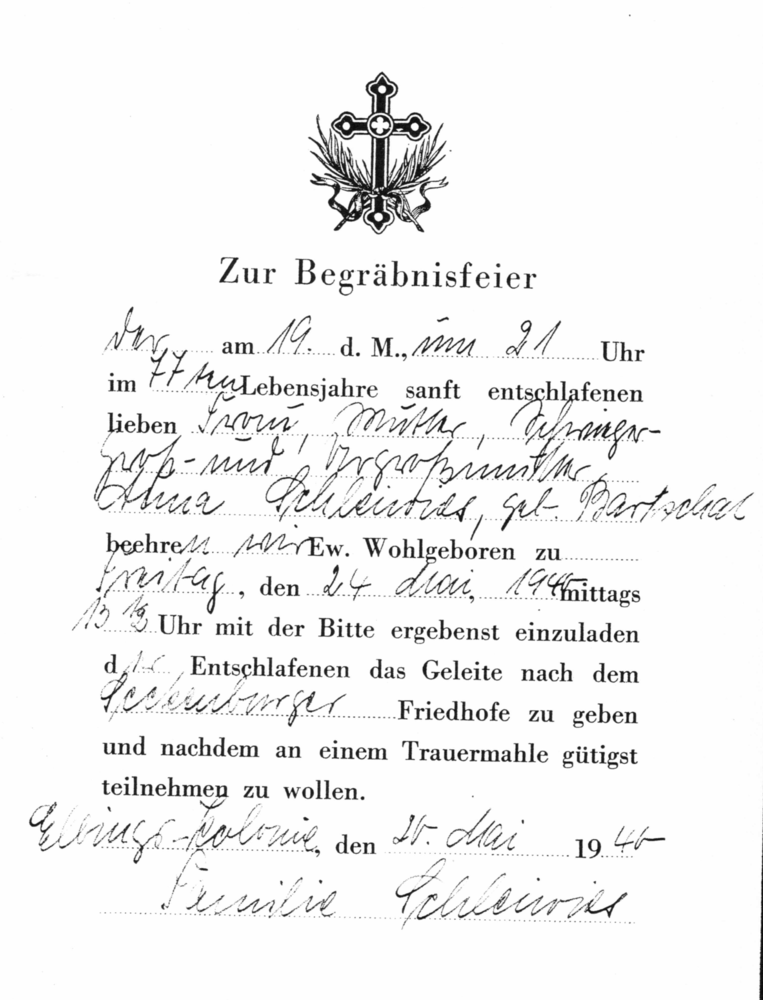 Zur Begräbnisfeier
der am 19. d. M., um 21 Uhr
im 77ten Lebensjahre sanft entschlafenen
lieben Frau, Mutter, Schwieger-
Groß- und Urgroßmutter
Anna Schleiwies, geb. Bartschat
beehren wir Ew. Wohlgeboren zu
Freitag, den 24 Mai, 1940 mittags
13 ½ Uhr mit der Bitte ergebenst einzuladen
der Entschlafenen das Geleite nach dem
Seckenburger Friedhofe zu geben
und nachdem an einem Trauermahle gütigst
teilnehmen zu wollen.
Elbings-Kolonie, den 20. Mai 1940
Familie Schleiwies